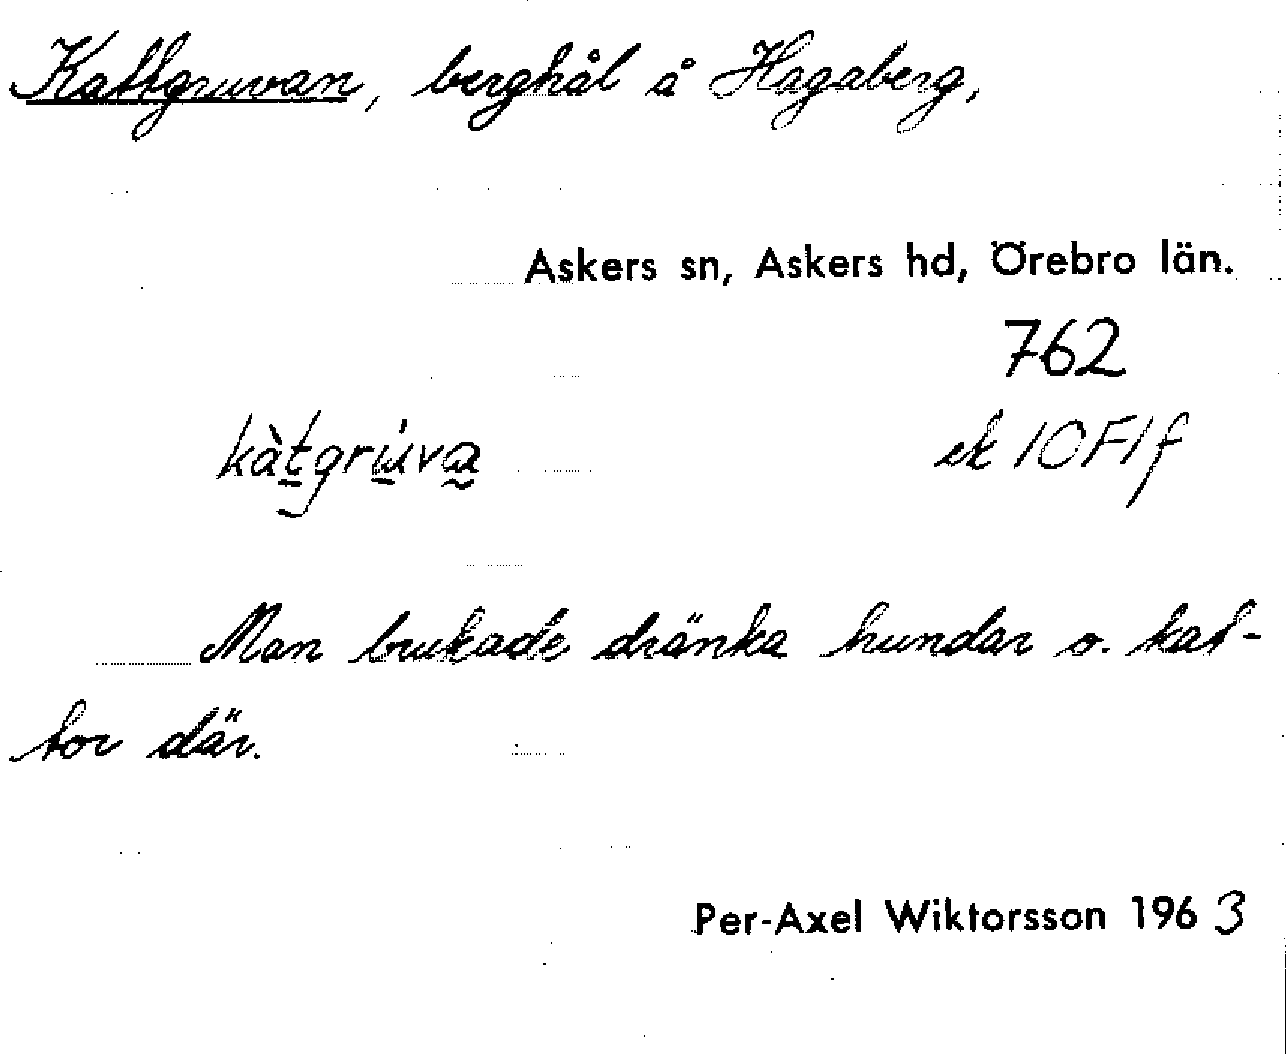 Kattgruvan, berghål å Hagaberg,
Askers sn, Askers hd, Örebro län.
762
kàtgrúva
ek 10F1f
Man brukade dränka hundar o. kat-
tor där.
Per-Axel Wiktorsson 1963